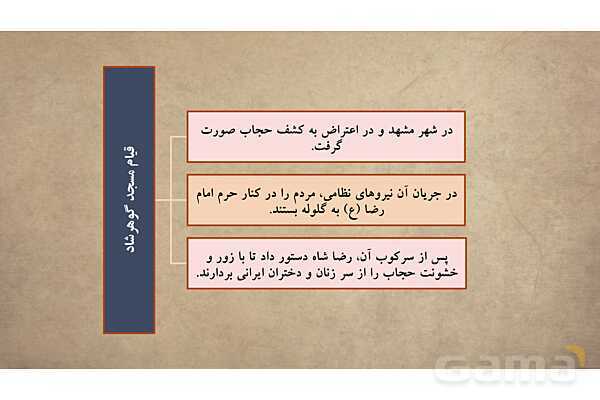 قیام مسجد گوهرشاد
در شهر مشهد و در اعتراض به کشف حجاب صورت
گرفت.
در جریان آن نیروهای نظامی، مردم را در کنار حرم امام
رضا (ع) به گلوله بستند.
پس از سرکوب آن، رضا شاه دستور داد تا با زور و
خشونت حجاب را از سر زنان و دختران ایرانی بردارند.
Gama